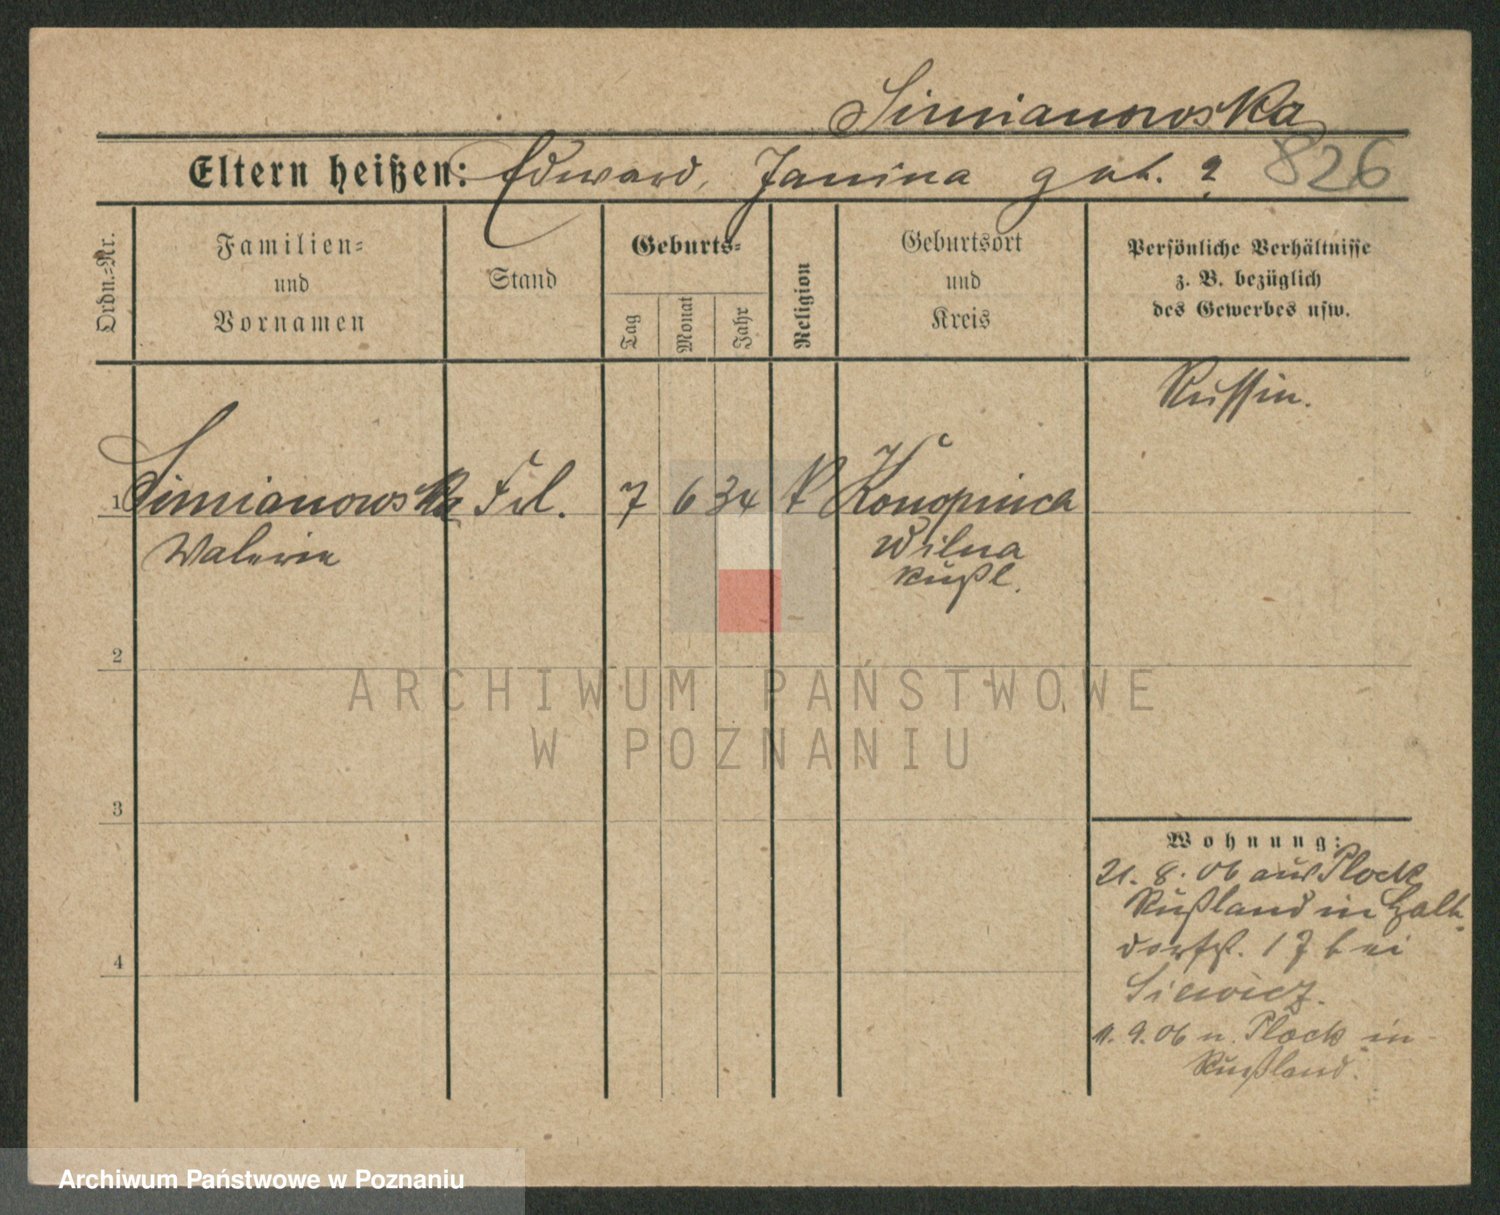 Simianowska
Eltern heißen: Edward, Janina geb. ? 826
Ordn.-Nr.
Familien-
und
Vornamen
Stand
Geburts-
Tag
Monat
Jahr
Religion
Geburtsort
und
Kreis
Persönliche Verhältnisse
z. B. bezüglich
des Gewerbes usw.
Russin.
1 Simianowska Frl. 7 6 34 k Konopnica
Valerie Wilna
Rußl.
2
3
4
Wohnung:
21. 8. 06 aus Plock
Rußland in Halb
dorfst. 17 bei
11. 9. 06 n. Plock in
Rußland.
ARCHIWUM PAŃSTWOWE
W POZNANIU
Archiwum Państwowe w Poznaniu